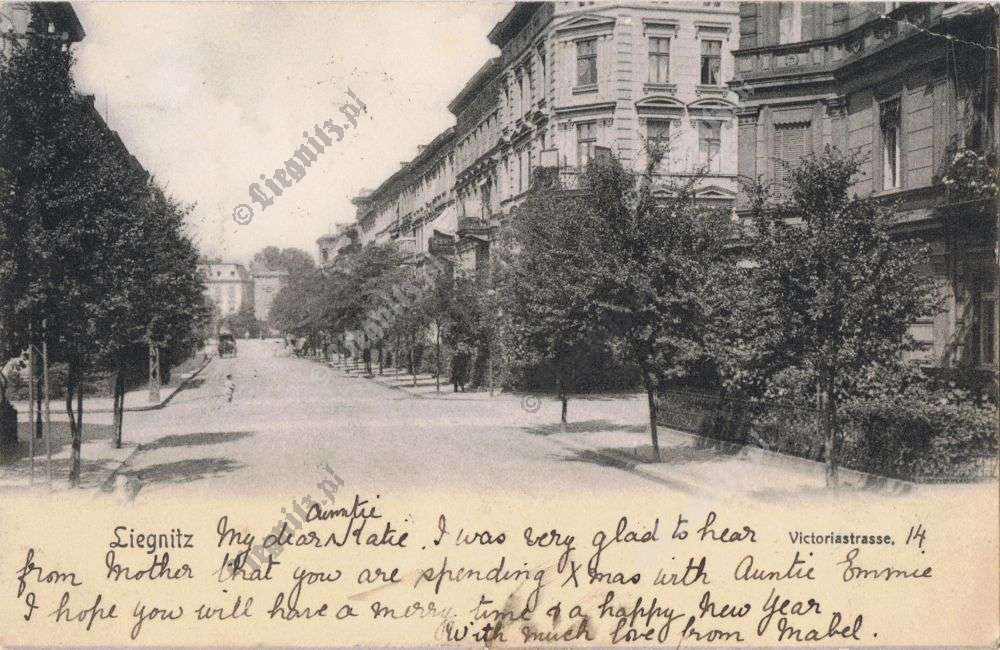 © Liegnitz.pl
© Liegnitz.pl
© Liegnitz.pl
Auntie
Liegnitz My dear Katie. I was very glad to hear Victoriastrasse, 14
from Mother that you are spending Xmas with Auntie Emmie
I hope you will have a merry time & a happy New Year
With much love from Mabel.